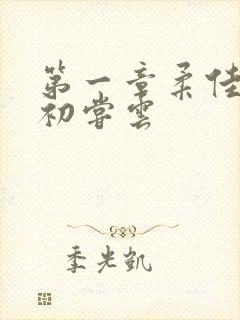 第一章柔佳
初尝雲
季光凯